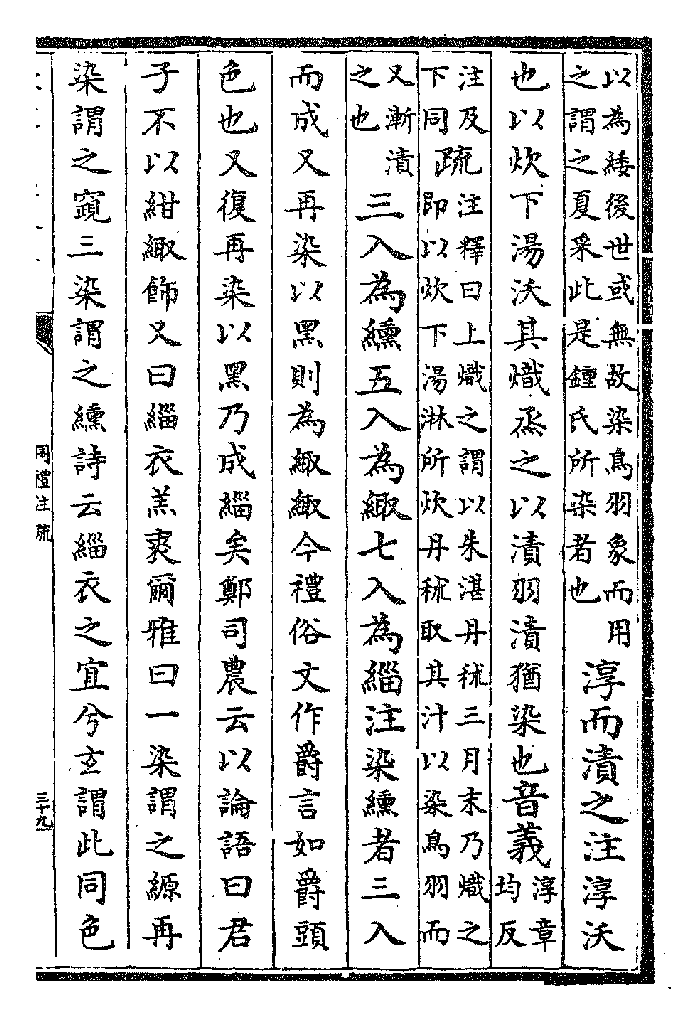 以為緌後世或無故染鳥羽象而用
之謂之夏采此是鍾氏所染者也
淳而漬之注淳沃
也以炊下湯沃其熾烝之以漬羽漬猶染也音義
淳章
均反
注及
下同
疏
注釋曰上熾之謂以朱湛丹秫三月末乃熾之
即以炊下湯淋所炊丹秫取其汁以染鳥羽而
又漸漬
之也
三入為纁五入為緅七入為緇注染纁者三入
而成又再染以黑則為緅緅今禮俗文作爵言如爵頭
色也又復再染以黑乃成緇矣鄭司農云以論語曰君
子不以紺緅飾又曰緇衣羔裘爾雅曰一染謂之縓再
染謂之竀三染謂之纁詩云緇衣之宜兮玄謂此同色
周禮注疏
三十九